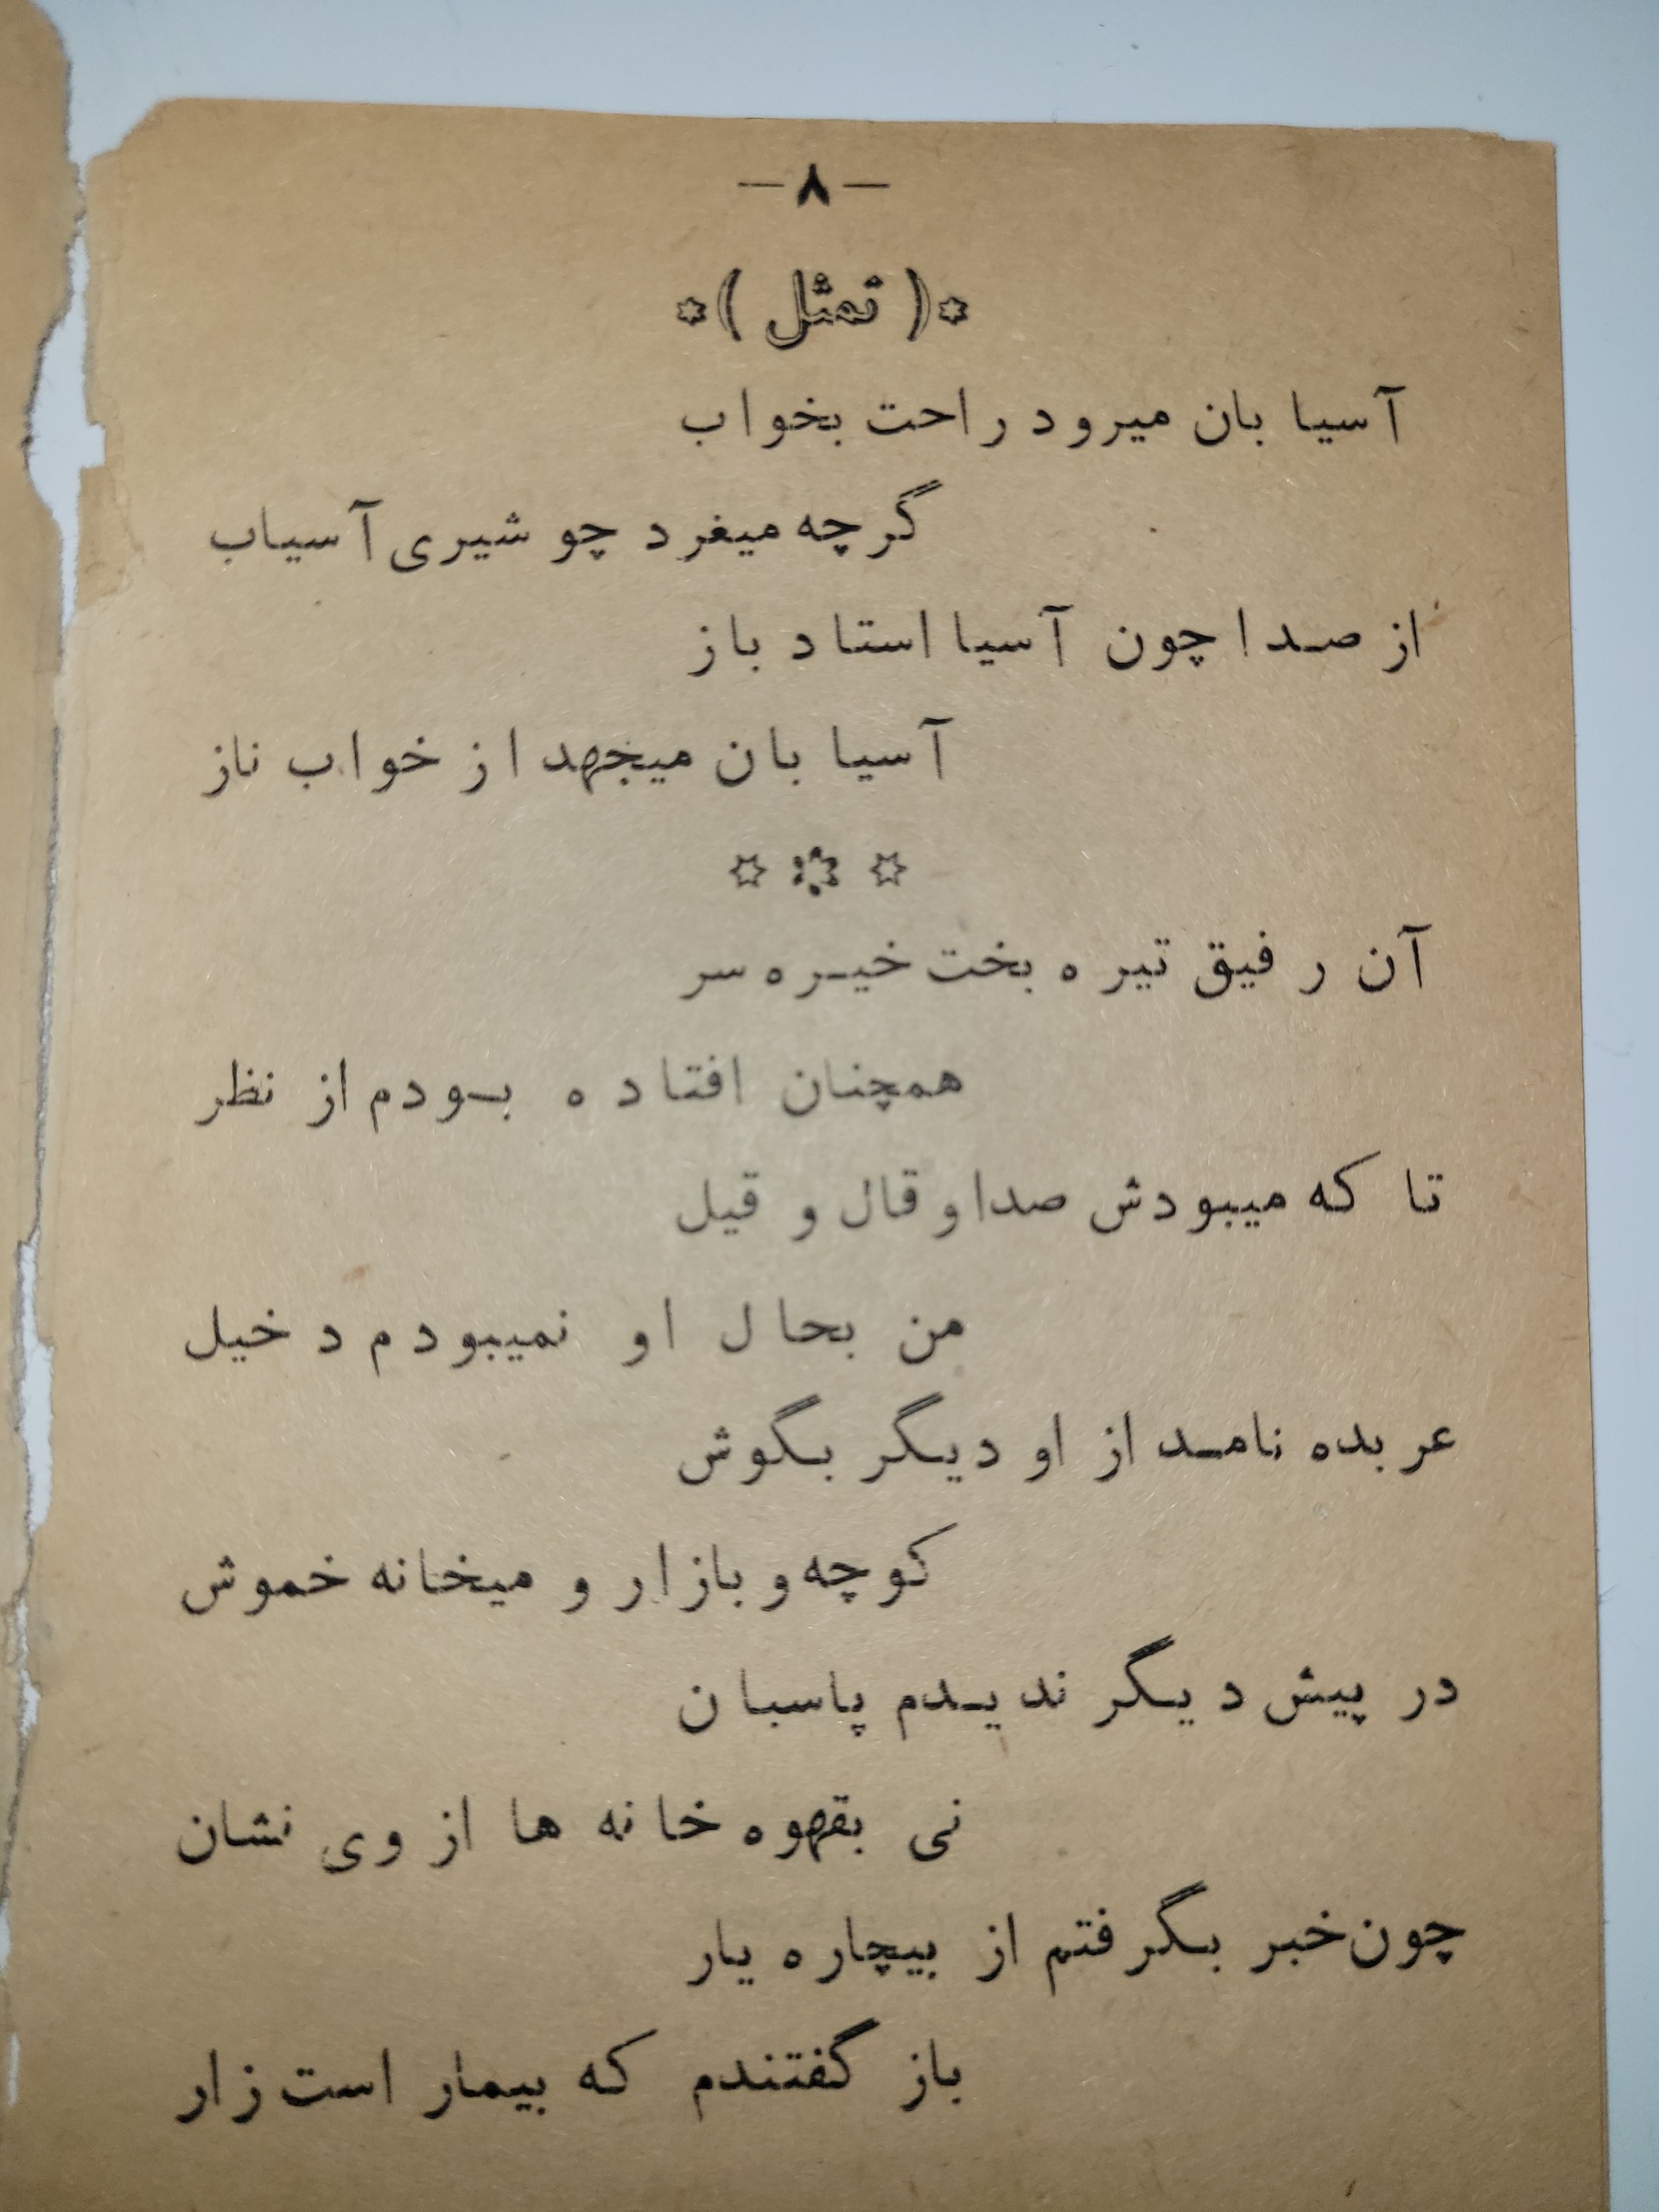 —۸—
*( تمثل )*
آسیا بان میرود راحت بخواب
گرچه میغرد چو شیری آسیاب
از صدا چون آسیا استاد باز
آسیا بان میجهد از خواب ناز
* * *
آن رفیق تیره بخت خیره سر
همچنان افتاده بودم از نظر
تا که میبودش صدا و قال و قیل
من بحال او نمیبودم دخیل
عربده نامد از او دیگر بگوش
کوچه و بازار و میخانه خموش
در پیش دیگر ندیدم پاسبان
نی بقهوه خانه ها از وی نشان
چون خبر بگرفتم از بیچاره یار
باز گفتندم که بیمار است زار